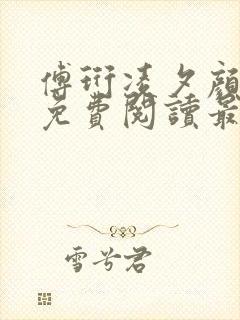 傅衍凌夕顔
免費閱讀最
雪兮君